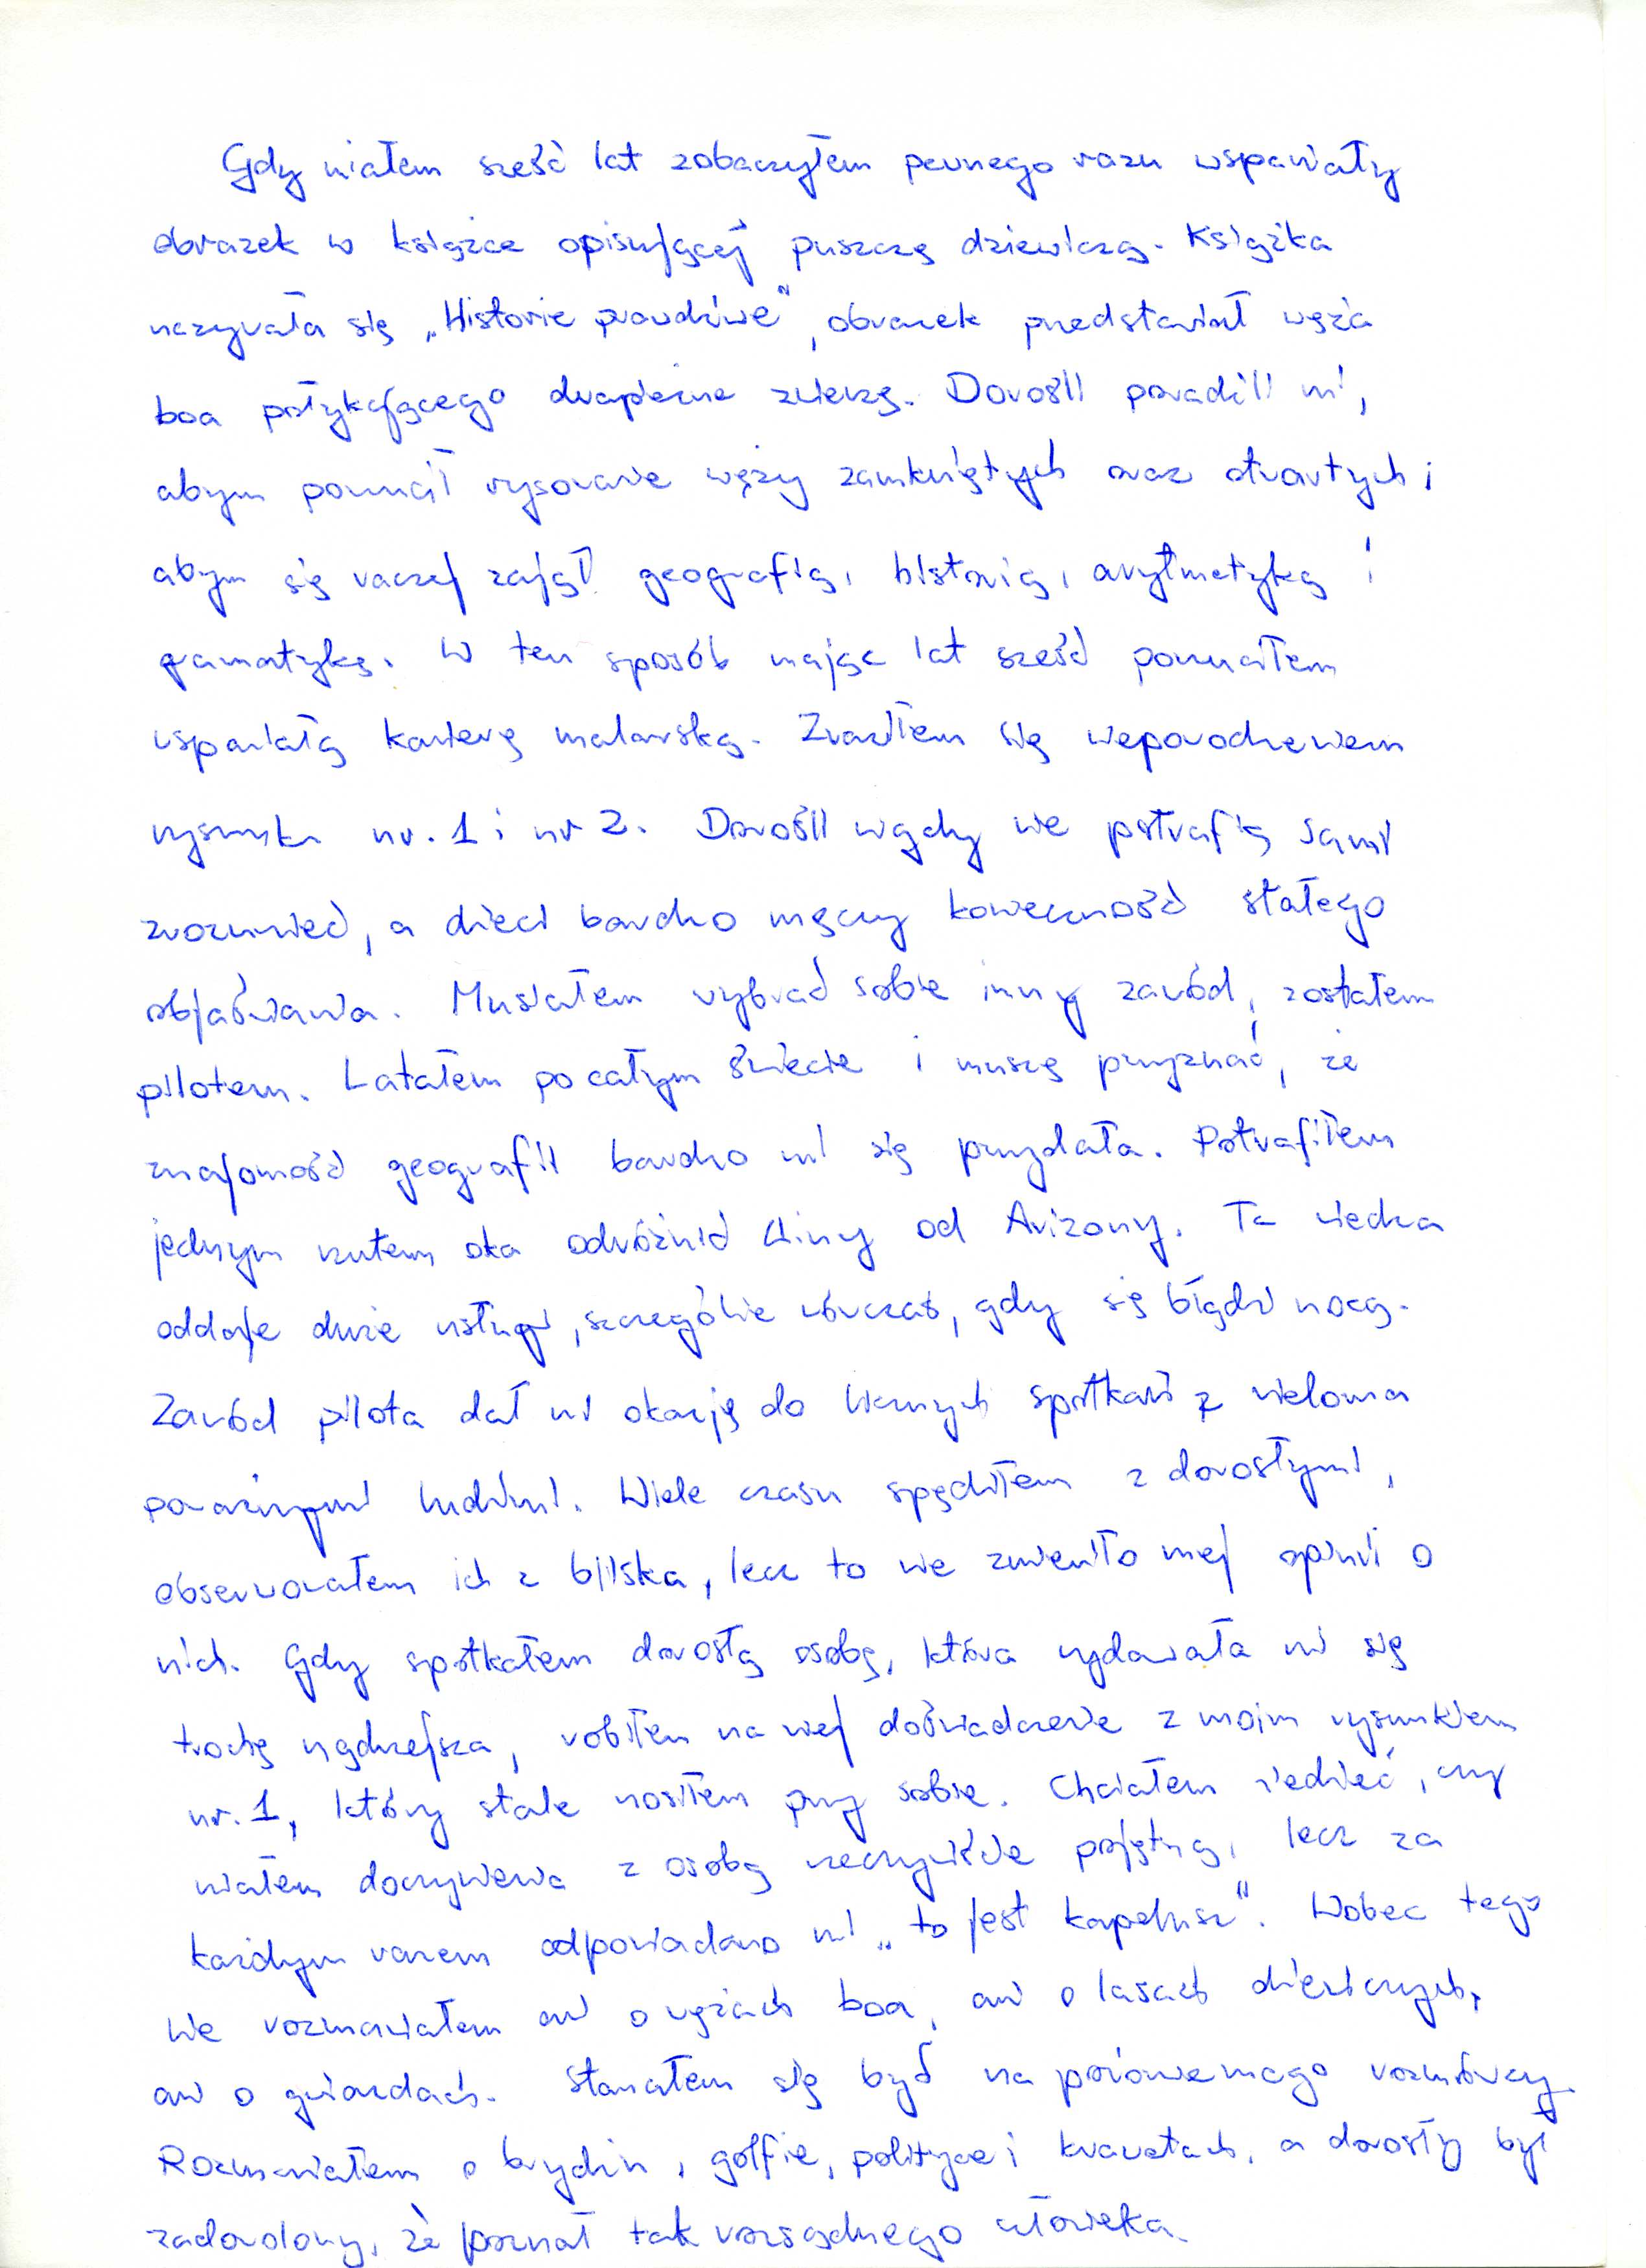 Gdy miałem sześć lat zobaczyłem pewnego razu wspaniały
obrazek w książce opisującej puszczę dziewiczą. Książka
nazywała się „Historie prawdziwe”, obrazek przedstawiał węża
boa połykającego drapieżne zwierzę. Dorośli poradzili mi,
abym porzucił rysowanie węży zamkniętych oraz otwartych i
abym się raczej zajął geografią, historią, arytmetyką i
gramatyką. W ten sposób mając lat sześć porzuciłem
wspaniałą karierę malarską. Zraziłem się niepowodzeniem
rysunku nr. 1 i nr 2. Dorośli nigdy nie potrafią sami
zrozumieć, a dzieci bardzo męczy konieczność stałego
objaśniania. Musiałem wybrać sobie inny zawód, zostałem
pilotem. Latałem po całym świecie i muszę przyznać, że
znajomość geografii bardzo mi się przydała. Potrafiłem
jednym rzutem oka odróżnić Chiny od Arizony. Ta wiedza
oddaje duże usługi, szczególnie wówczas, gdy się błądzi nocą.
Zawód pilota dał mi okazję do licznych spotkań z wieloma
poważnymi ludźmi. Wiele czasu spędziłem z dorosłymi,
obserwowałem ich z bliska, lecz to nie zmieniło mej opinii o
nich. Gdy spotkałem dorosłą osobę, która wydawała mi się
trochę mądrzejsza, robiłem na niej doświadczenie z moim rysunkiem
nr. 1, który stale nosiłem przy sobie. Chciałem wiedzieć, czy
miałem do czynienia z osobą rzeczywiście pojętną, lecz za
każdym razem odpowiadano mi „to jest kapelusz”. Wobec tego
nie rozmawiałem ani o wężach boa, ani o lasach dziewiczych,
ani o gwiazdach. Starałem się być na poziomie mego rozmówcy.
Rozmawiałem o brydżu, golfie, polityce i krawatach, a dorosły był
zadowolony, że poznał tak rozsądnego człowieka.